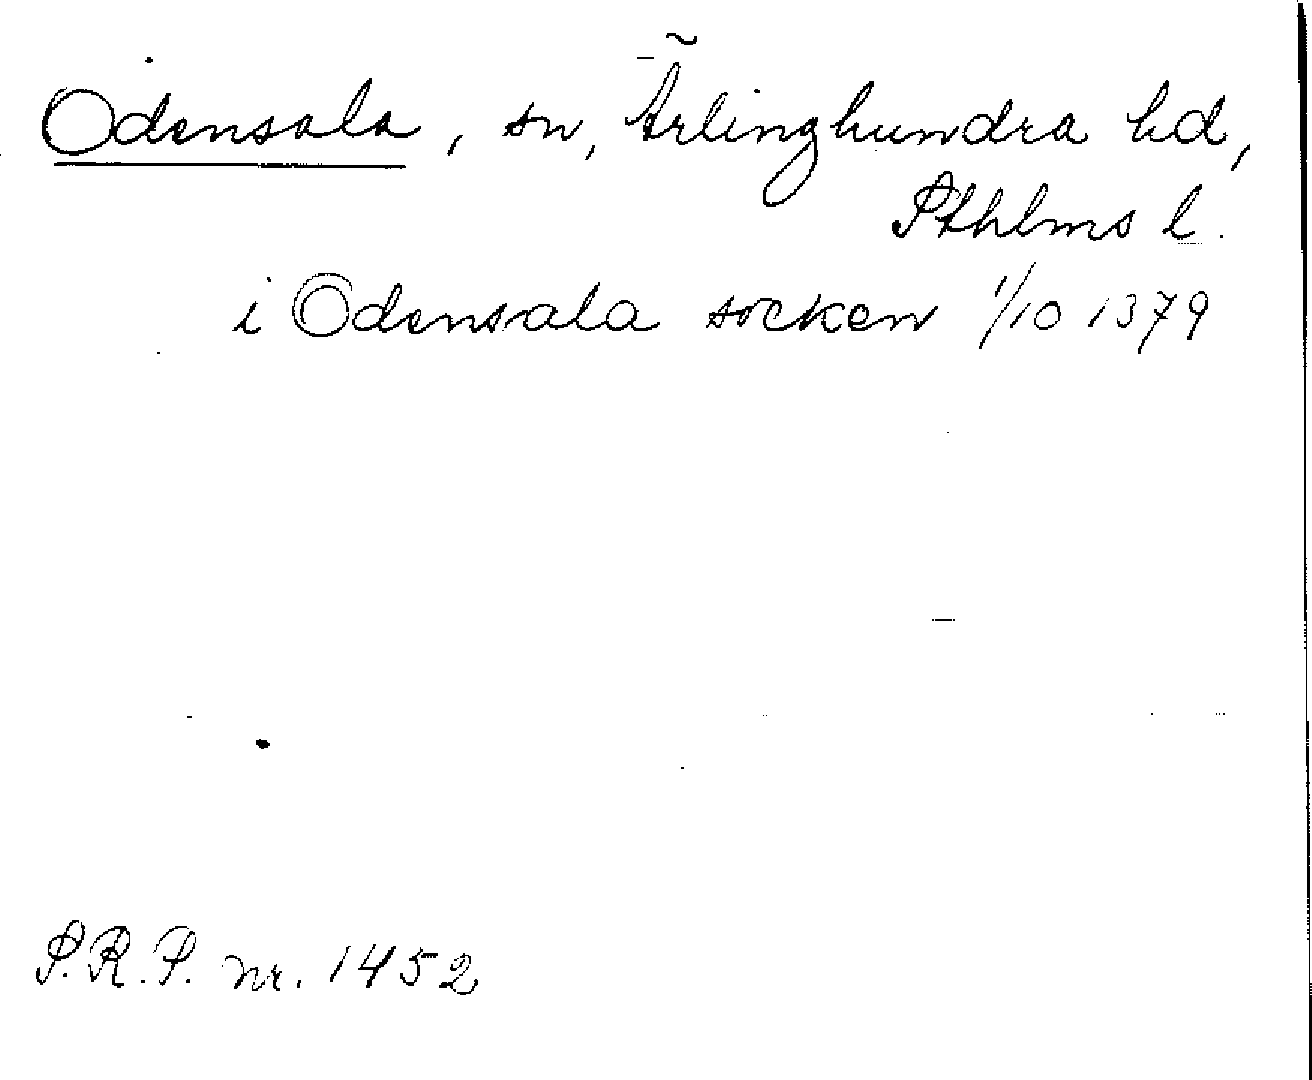 Odensala, sn, Ärlinghundra hd,
Sthlms l.
i Odensala socken 1/10 1379
S.R.P. nr. 1452